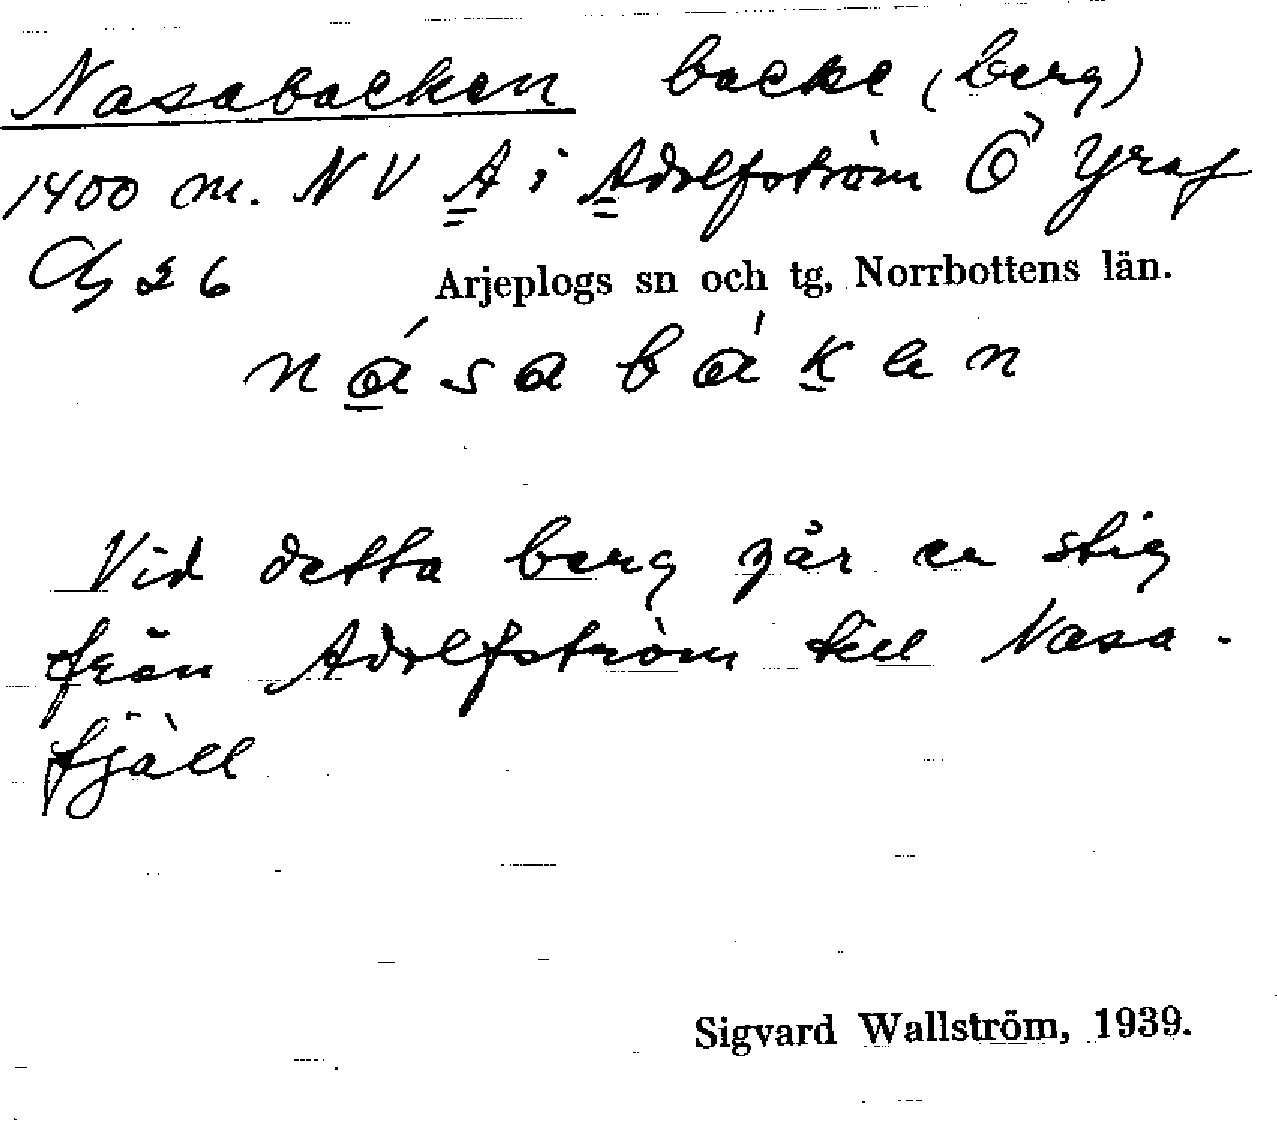 Nasabacken backe (berg)
1400 m. NV A i Adolfström
26 Arjeplogs sn och tg, Norrbottens län.
násabáken
Vid detta berg går en stig
från Adolfström till Nasa-
fjäll
Sigvard Wallström, 1939.